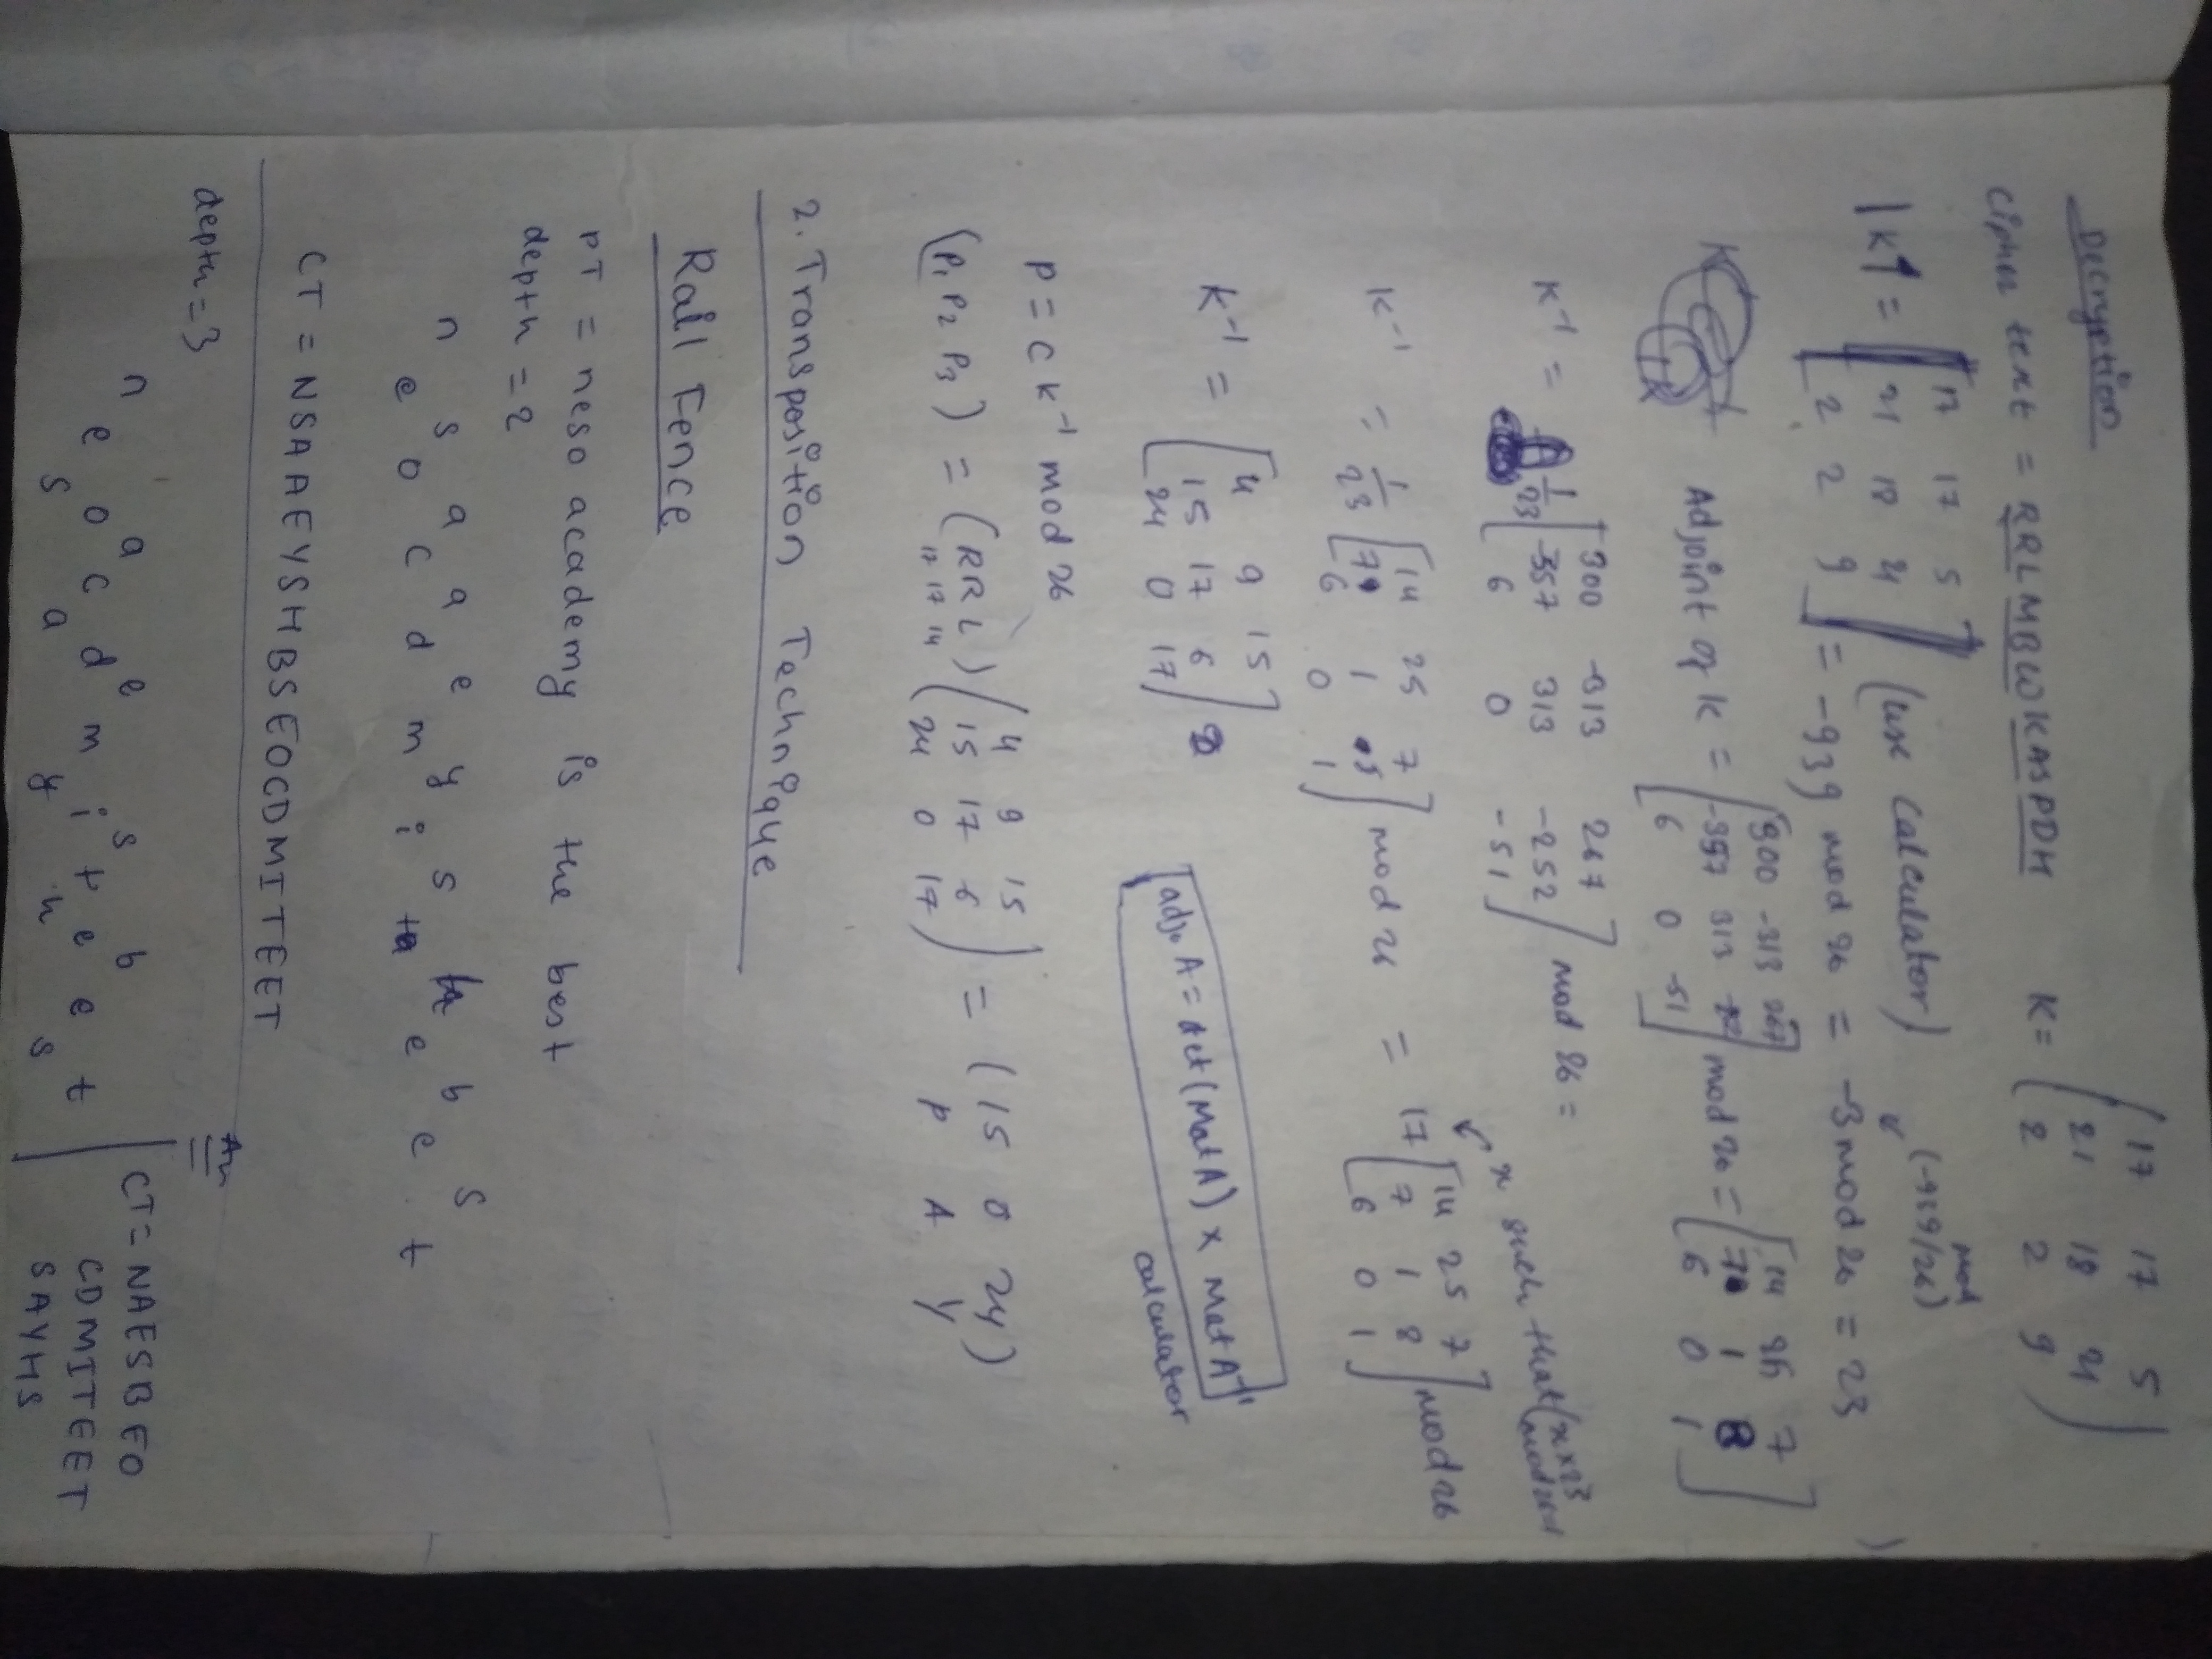 Decryption
Cipher text = RRLMBWKASPDH K = ( 17 17 5
21 18 21
2 2 9 )
|K| = [ 17 17 5
21 18 21
2 2 9 ] (use calculator)
= -939 mod 26 = -3 mod 26 = 23
(-939/26) mod
Adjoint of K = [ 300 -313 267
-357 313 -252
6 0 -51 ] mod 26 = [ 14 25 7
7 1 8
6 0 1 ]
K⁻¹ = 1/23 [ 300 -313 267
-357 313 -252
6 0 -51 ] mod 26 =
x such that (x×23
K⁻¹ = 1/23 [ 14 25 7
7 1 8
6 0 1 ] mod 26 = 17 [ 14 25 7
7 1 8
6 0 1 ] mod 26
K⁻¹ = [ 4 9 15
15 17 6
24 0 17 ]
adj A = det (Mat A) × Mat A⁻¹
calculator
P = C K⁻¹ mod 26
(P₁ P₂ P₃) = (R R L) ( 4 9 15
17 17 14 15 17 6
24 0 17 ) = (15 0 24)
P A Y
2. Transposition Technique
Rail Fence
PT = neso academy is the best
depth = 2
n s a a e y s h b s
e o c d m i t e e t
CT = NSAAEYSHBSEOCDMITEET
depth = 3
n a e s b
e o c d m i t e e t
s a y h s
CT = NAESBEO
CDMITEET
SAYHS